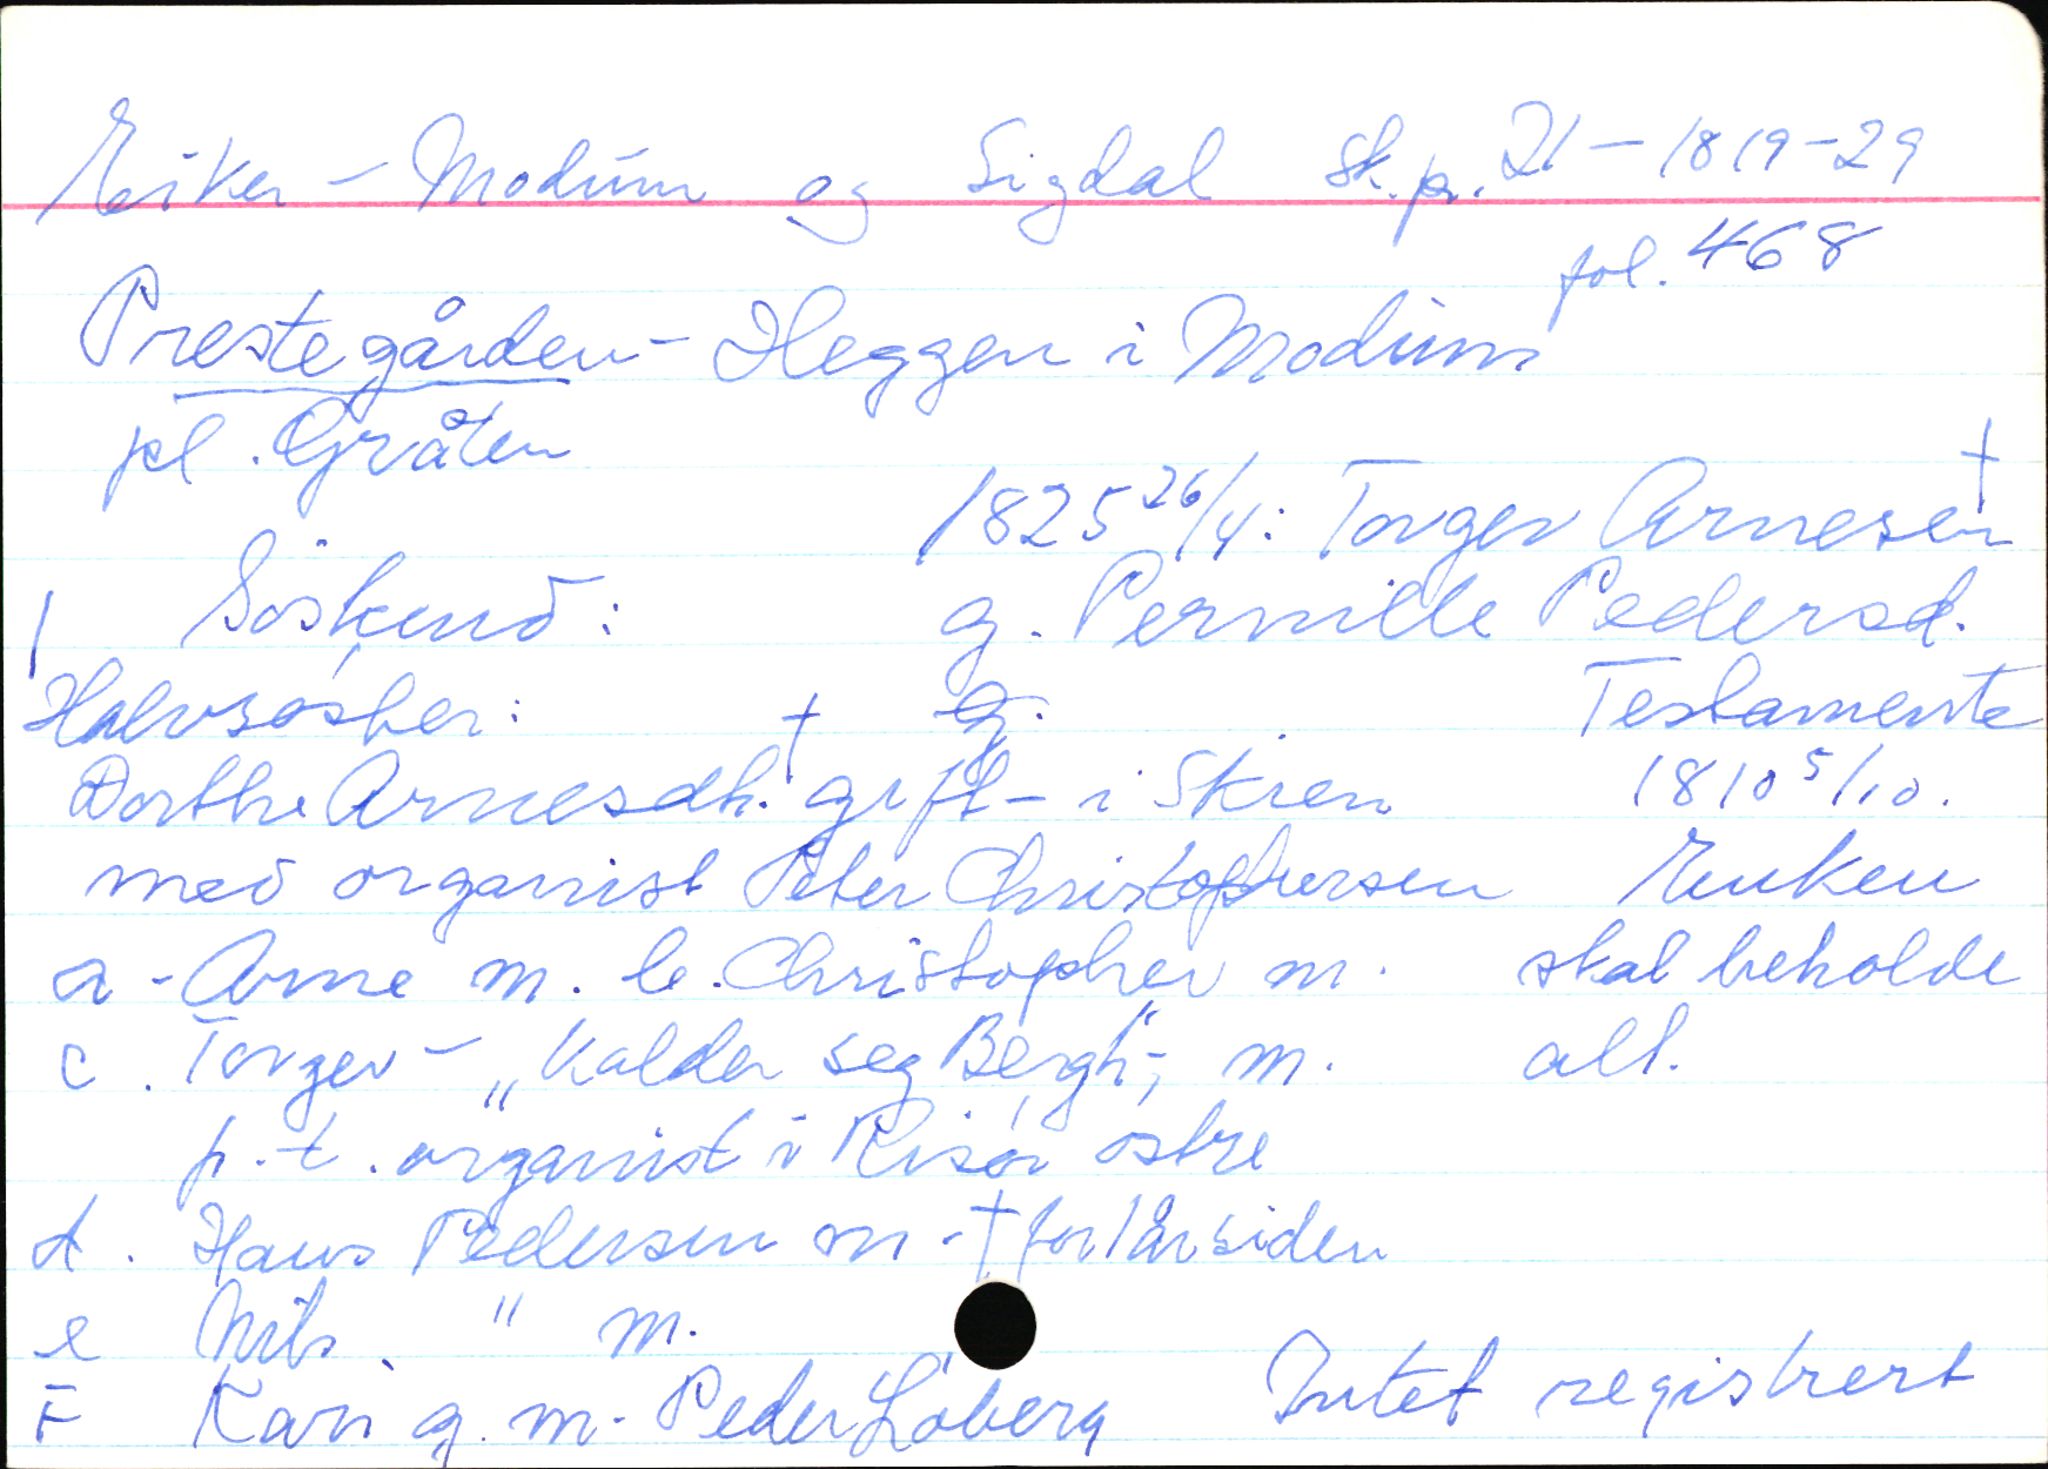 Eiker - Modum og Sigdal sk.pr. 21 - 1819-29
fol. 468
Prestegården - Heggen i Modum
pl. Gråten
1825 26/4: Torger Arnesen †
1 Söskend: g. Pernille Pedersd.
Halvsöster: g. Testamente
Dorthe Arnesdh. † gift - i Skien 1810 5/10.
med organist Peter Christophersen Enken
a - Arne m. b. Christopher m. skal beholde
c. Torger - „Kalder seg Bergh“; m. alt.
p.t. organist i Risör östre
d. Hans Pedersen m - † for 1 år siden
e Nils " m.
F Kari g. m. Peder Löberg Intet registrert